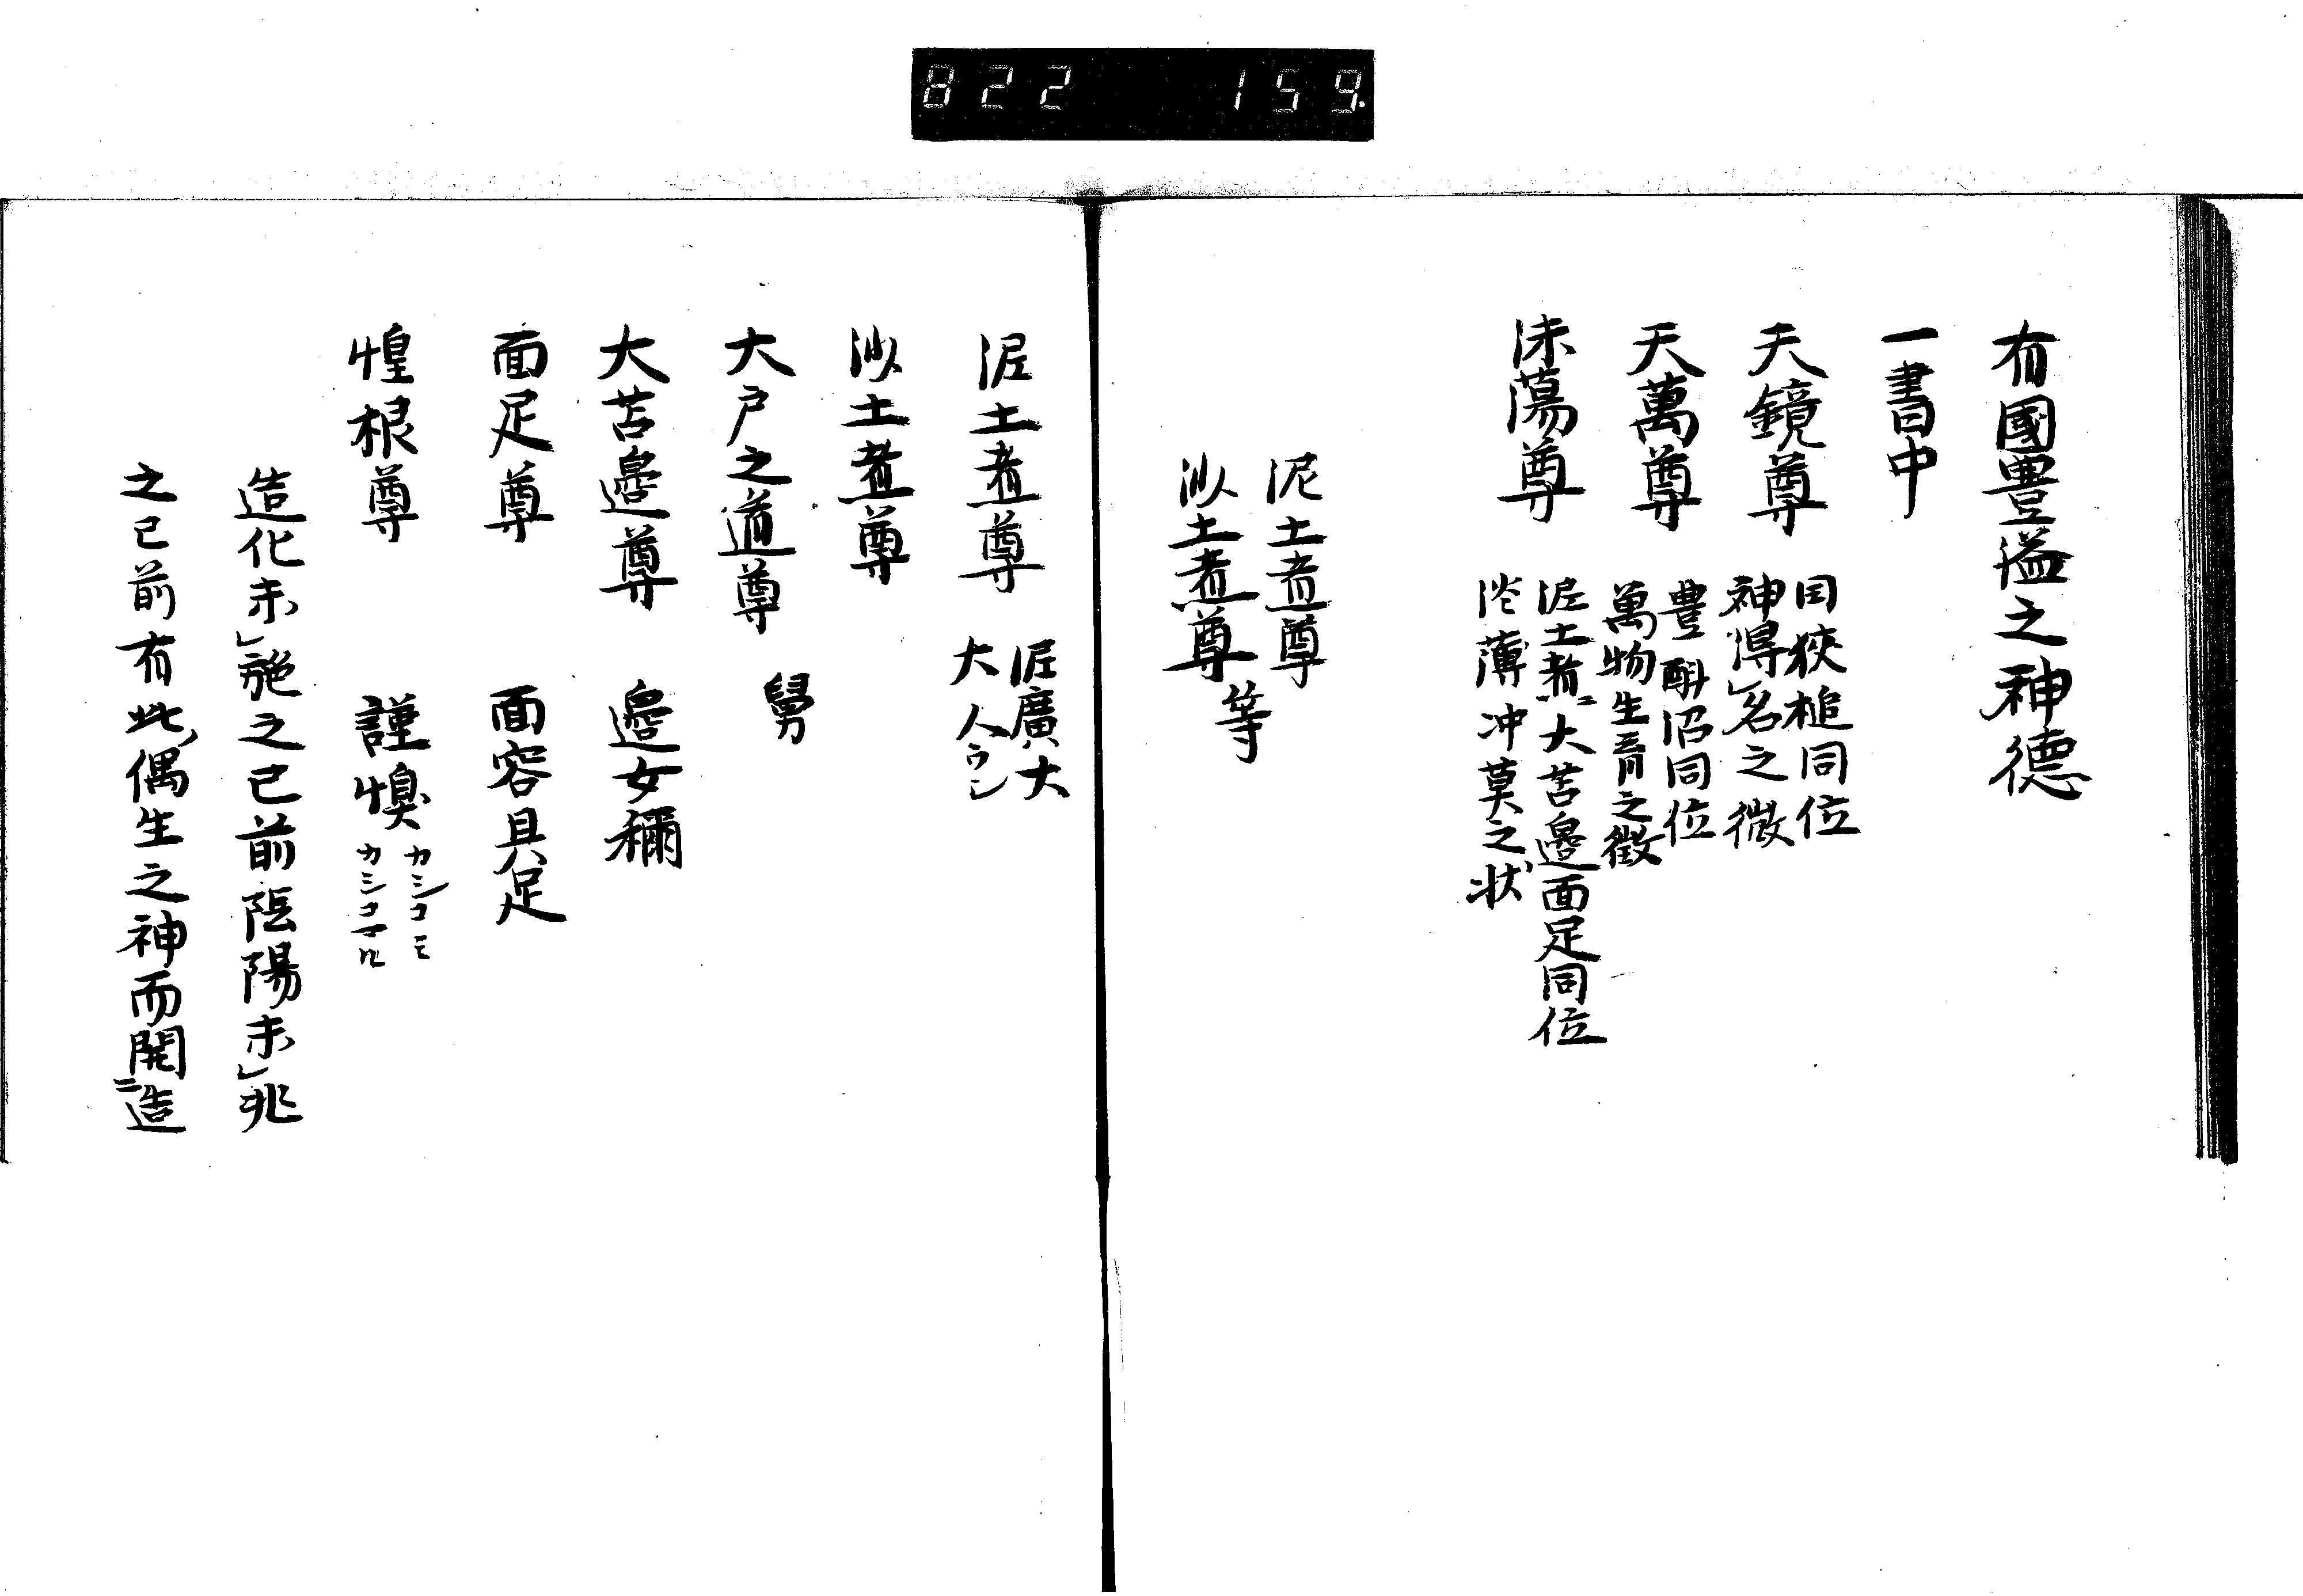 822 159.
有國豊溢之神德
一書中
天鏡尊 国狹槌同位
神得レ名之微
天萬尊 豊斟沼同位
萬物生育之徴
沫蕩尊 泥土煮大苫邊面足同位
淡薄冲莫之状
泥土煮尊
沙土煮尊 等
泥土煮尊 泥廣大
大人ウシ
沙土煮尊
大戸之道尊 舅
大苫邊尊 邊女稱
面足尊 面容具足
惶根尊 謹懊 カシコモ
カシコマル
造化未レ施之已前陰陽未レ兆
之已前有此偶生之神而開二造